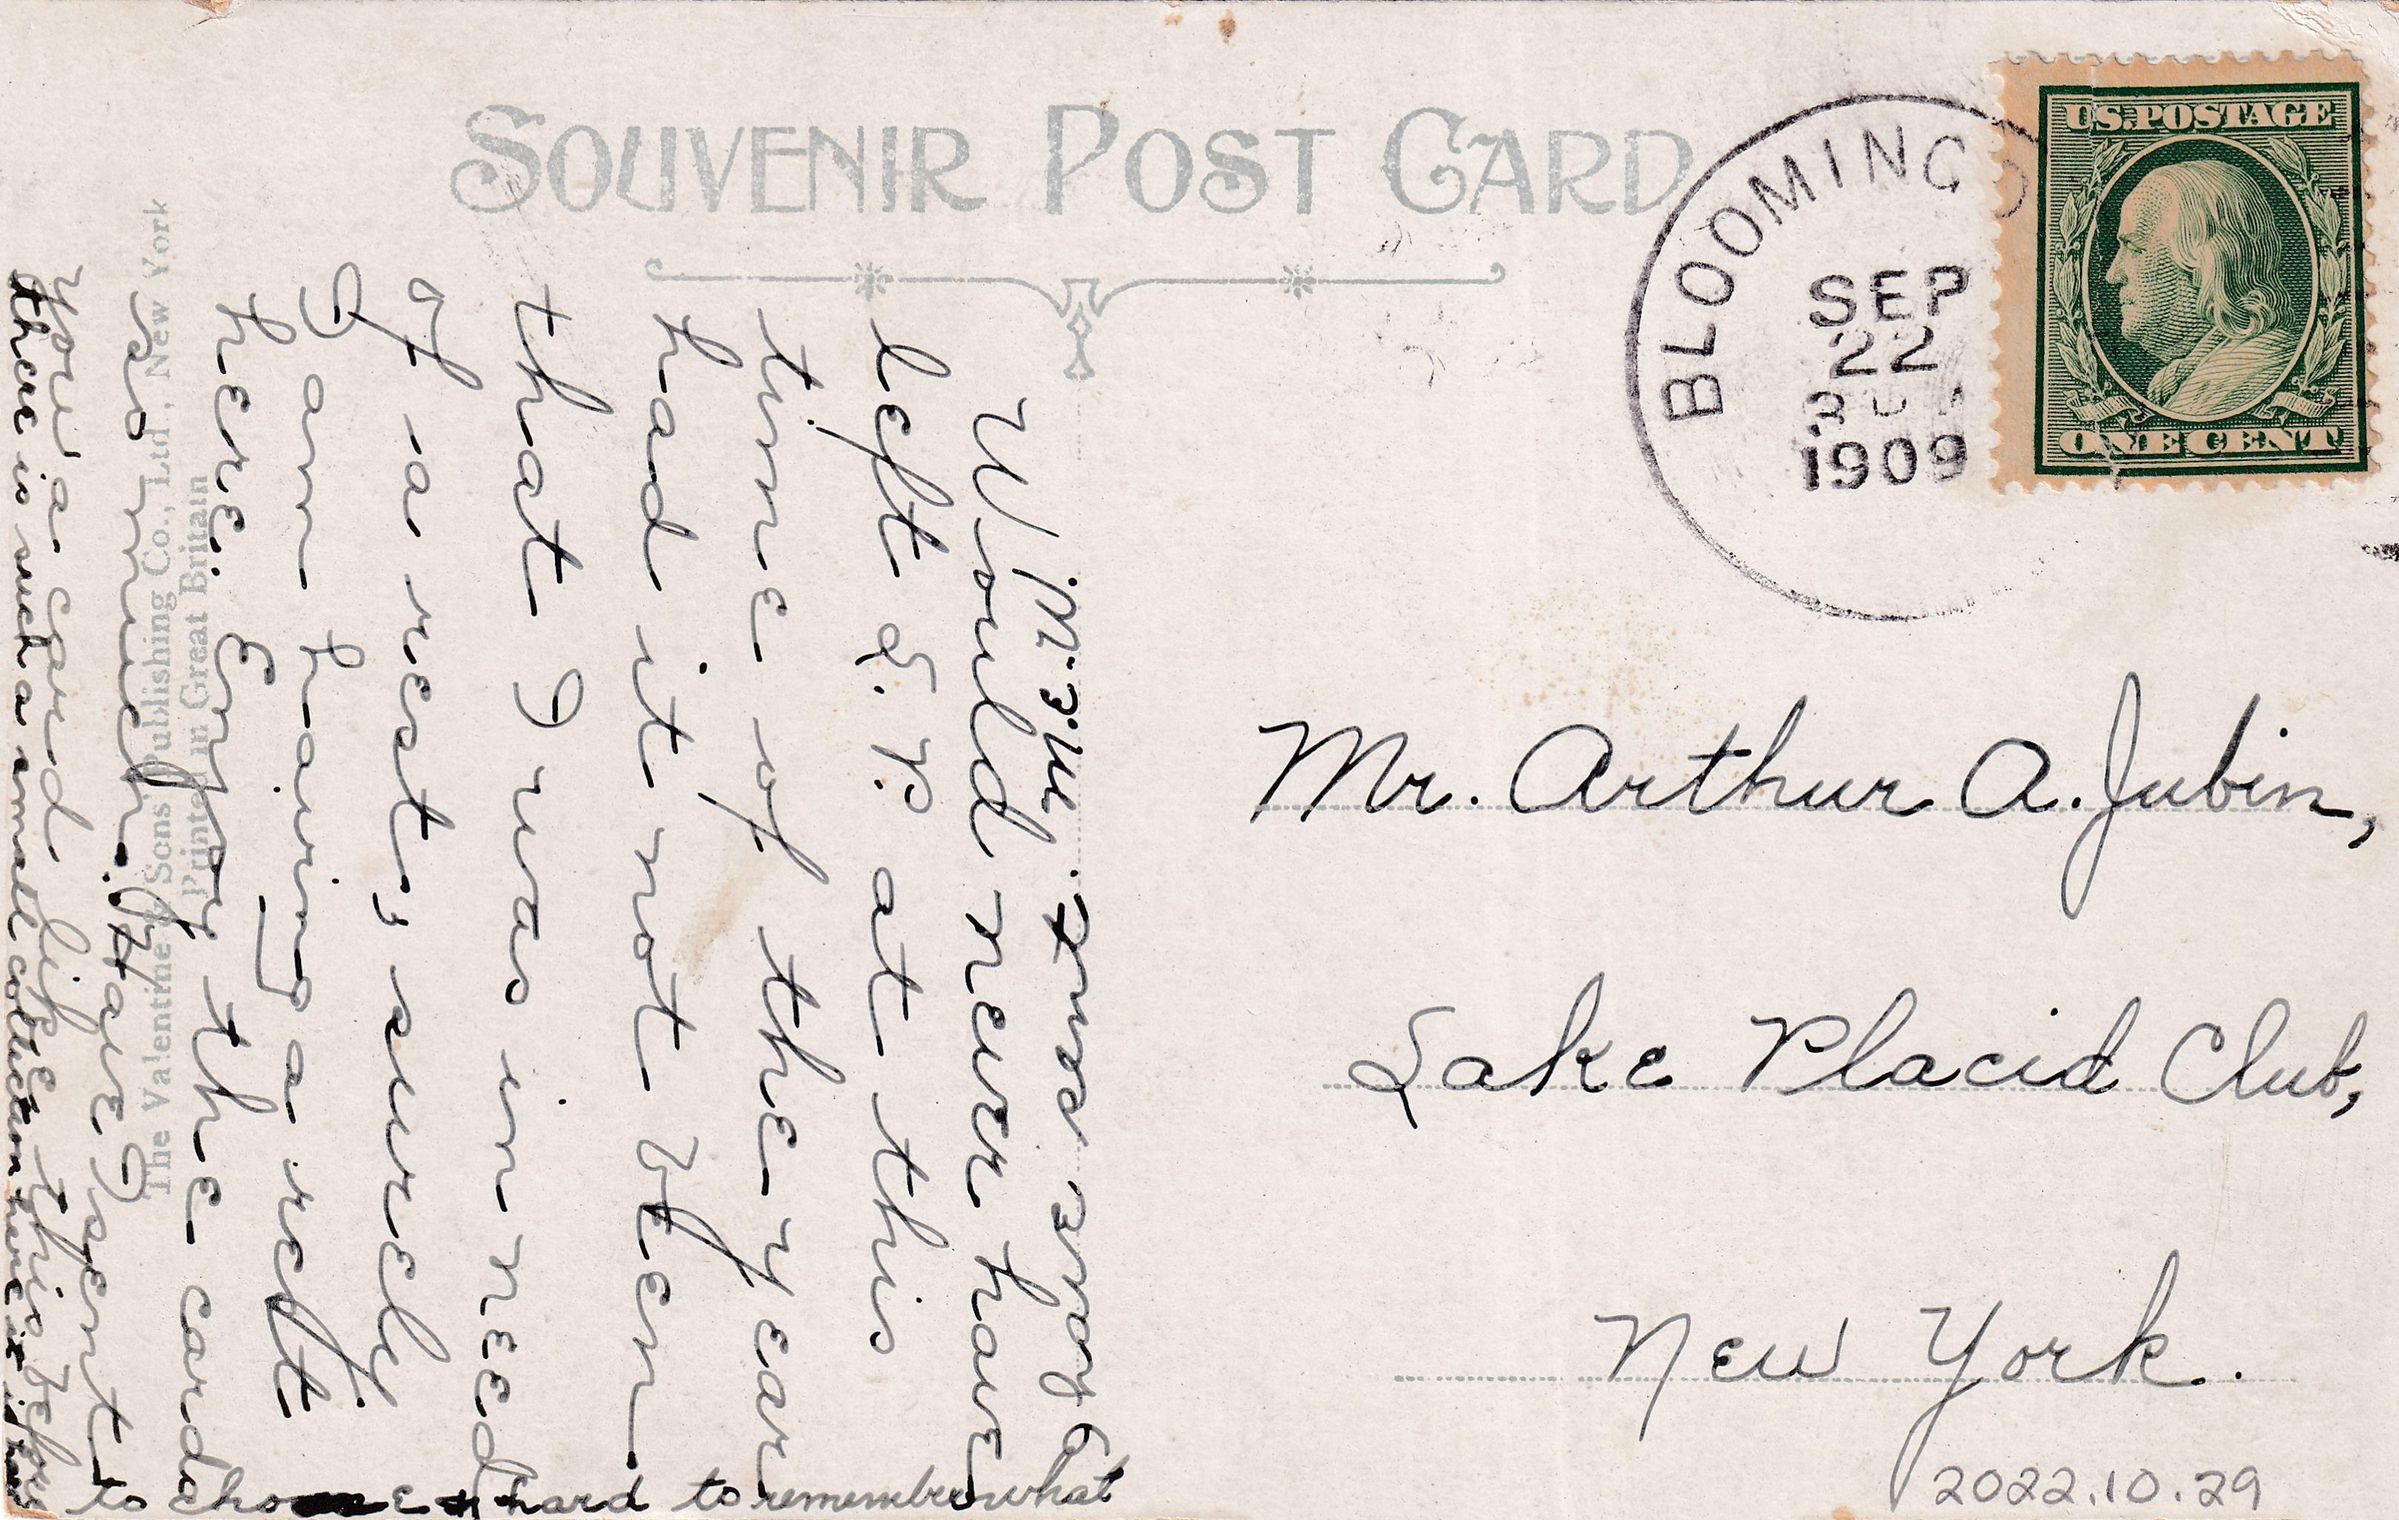 SOUVENIR POST CARD
U.S. POSTAGE
ONE CENT
BLOOMINGD
SEP
22
1909
Mr. Arthur A. Jubin,
Lake Placid Club,
New York.
2022.10.29
Would never have
left L. P. at this
time of the year
had it not been
that I was in need
of a rest, surely
I am having a rest
here. Enjoy the cards
so much. Have I sent
you a card like this before
there is such a small collection here it is hard
to choose & hard to remember what
The Valentine & Sons' Publishing Co., Ltd., New York
Printed in Great Britain